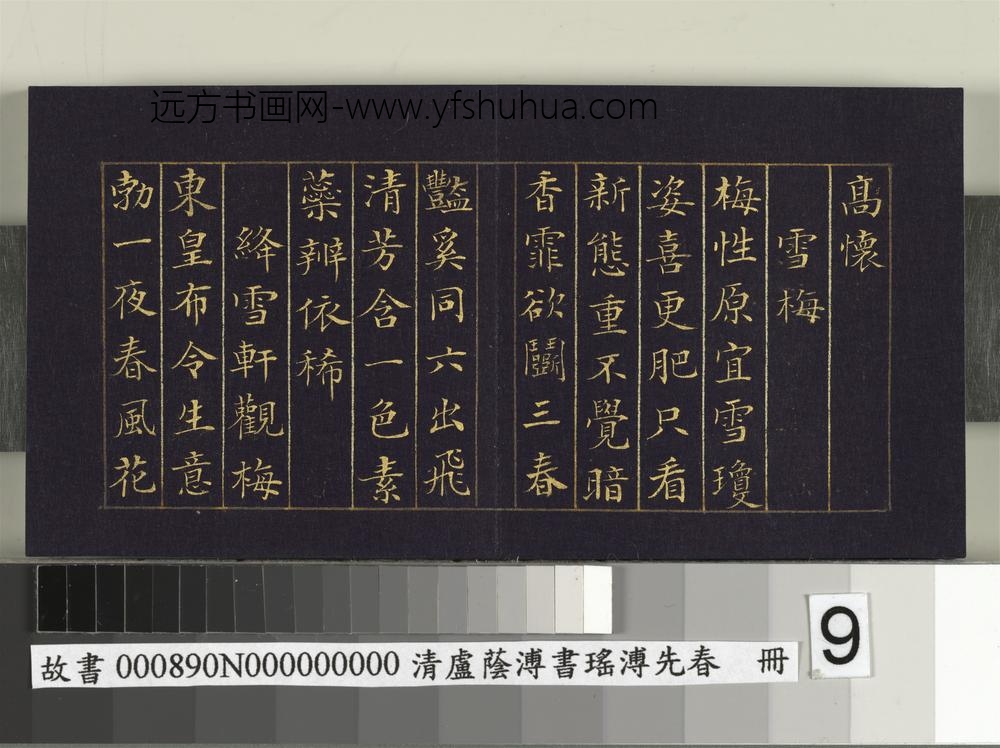 远方书画网-www.yfshuhua.com
高懷
雪梅
梅性原宜雪瓊
姿喜更肥只看
新態重不覺暗
香霏欲鬭三春
豔奚同六出飛
清芳含一色素
蘂辨依稀
絳雪軒觀梅
東皇布令生意
勃一夜春風花
9
故書000890N000000000 清盧蔭溥書瑤溥先春 冊